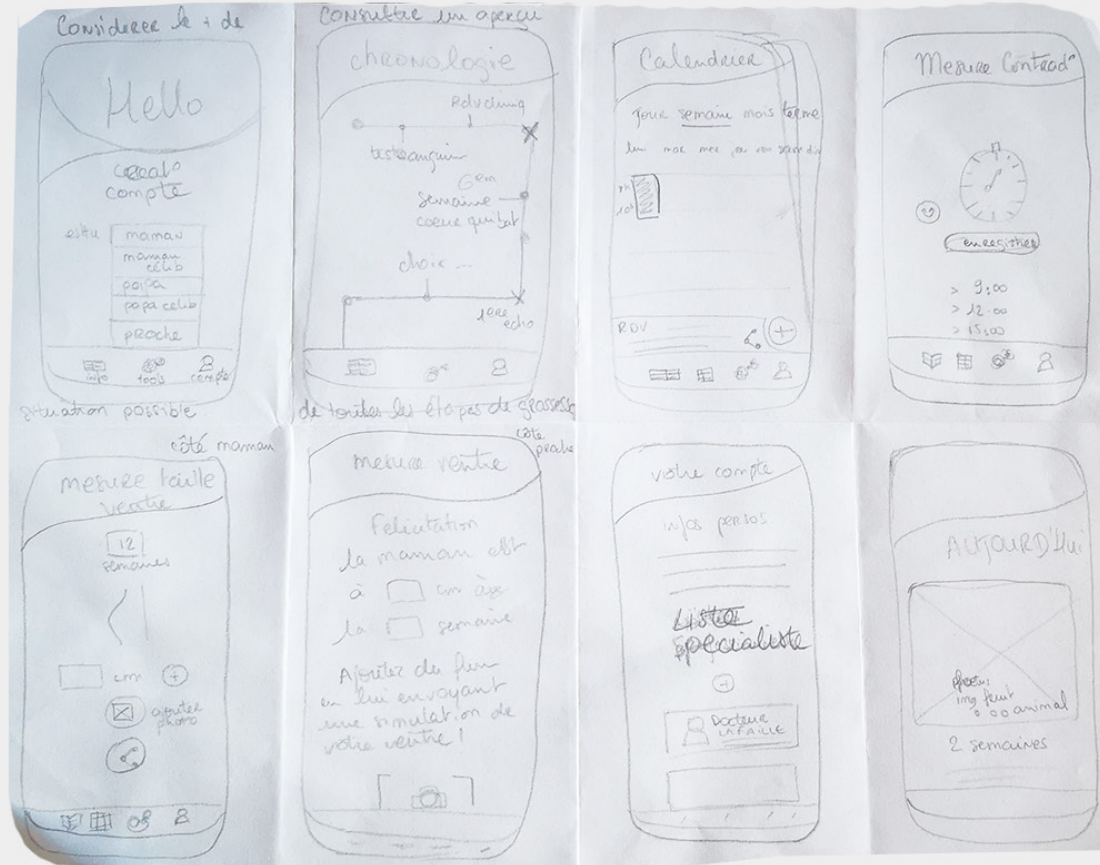 Considerer le + de
Hello
compte
maman
maman
célib
papa
papa célib
proche
info tools compte
situation possible
Consulter un aperçu
chronologie
test sanguin
semaine
coeur qui bat
choix ...
1ere
echo
de toutes les étapes de grossesse
Calendrier
jour semaine mois terme
10h
RDV
Mesure Contract°
enregistrer
> 9:00
> 12:00
> 15:00
côté maman
mesure taille
ventre
12
semaines
cm
ajouter
photo
côté
proche
mesure ventre
Felicitation
la maman est
à cm à
la semaine
Ajoutez du fun
en lui envoyant
une simulation de
votre ventre !
votre compte
infos persos
Liste
specialiste
Docteur
LAFAILLE
AUJOURD'Hui
img fruit
ou animal
2 semaines